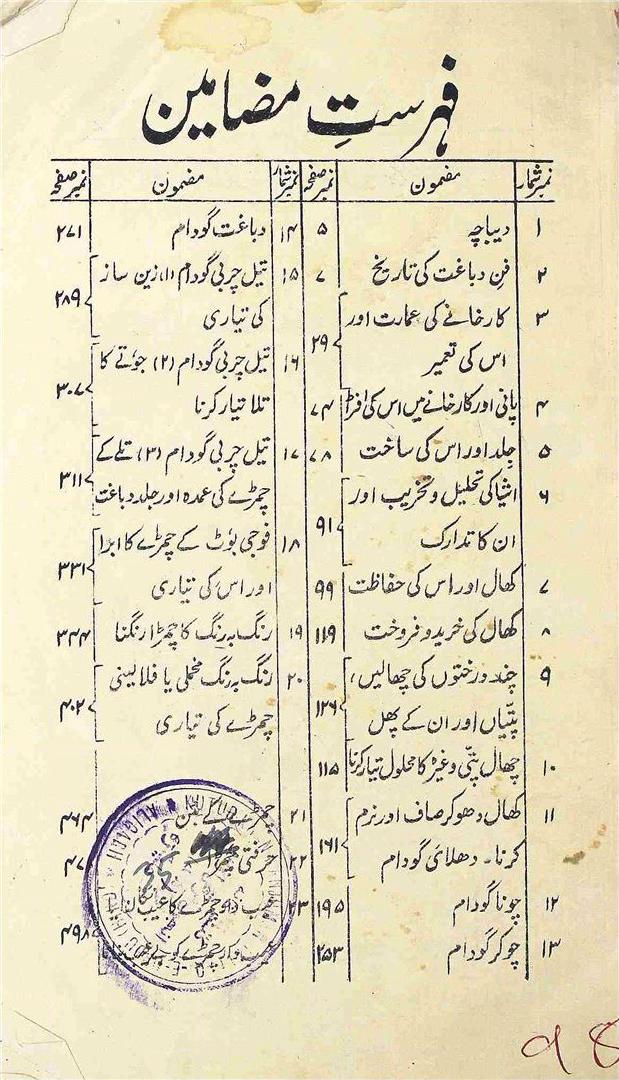 فہرستِ مضامین
نمبر شمار مضمون نمبر صفحہ
۱ دیباچہ ۵
۲ فنِ دباغت کی تاریخ ۷
۳ کارخانے کی عمارت اور
اس کی تعمیر ۲۹
۴ پانی اور کارخانے میں اس کی ۷۴
۵ جِلد اور اس کی ساخت ۷۸
۶ اشیا کی تحلیل و تخریب اور
ان کا تدارک ۹۱
۷ کھال اور اس کی حفاظت ۹۹
۸ کھال کی خرید و فروخت ۱۱۹
۹ چند درختوں کی چھالیں،
پتیّاں اور ان کے پھل ۱۲۶
۱۰ چھال پتّی وغیرہ کا محلول تیار کرنا ۱۱۵
۱۱ کھال دھوکر صاف اور نرم
کرنا۔ دھلائی گودام ۱۶۱
۱۲ چونا گودام ۱۹۵
۱۳ چوکر گودام ۲۵۳
نمبر شمار مضمون نمبر صفحہ
۱۴ دباغت گودام ۲۷۱
۱۵ تیل چربی گودام (۱) زین ساز
کی تیاری ۲۸۹
۱۶ تیل چربی گودام (۲) جوتے کا
تلا تیار کرنا ۳۰۷
۱۷ تیل چربی گودام (۳) تلے کے
چمڑے کی عمدہ اور جلد دباغت ۳۱۱
۱۸ فوجی بوٹ کے چمڑے کا ابرا
اور اس کی تیاری ۳۳۱
۱۹ رنگ بہ رنگ کا چمڑا رنگنا ۳۴۴
۲۰ رنگ بہ رنگ مخملی یا فلالینی
چمڑے کی تیاری ۴۰۲
۲۱ ۴۶۴
۲۲ ۴۷
۲۳ چمڑے کا عیب
۴۹۸
ALIGARH
98